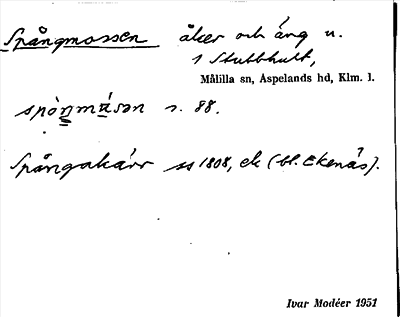 Spångmossen åker och äng u.
1 Stubbhult,
Målilla sn, Aspelands hd, Klm. l.
spòŋmásən s. 88.
Spångakärr ss 1808, ek (bl. Ekenäs).
Ivar Modéer 1951